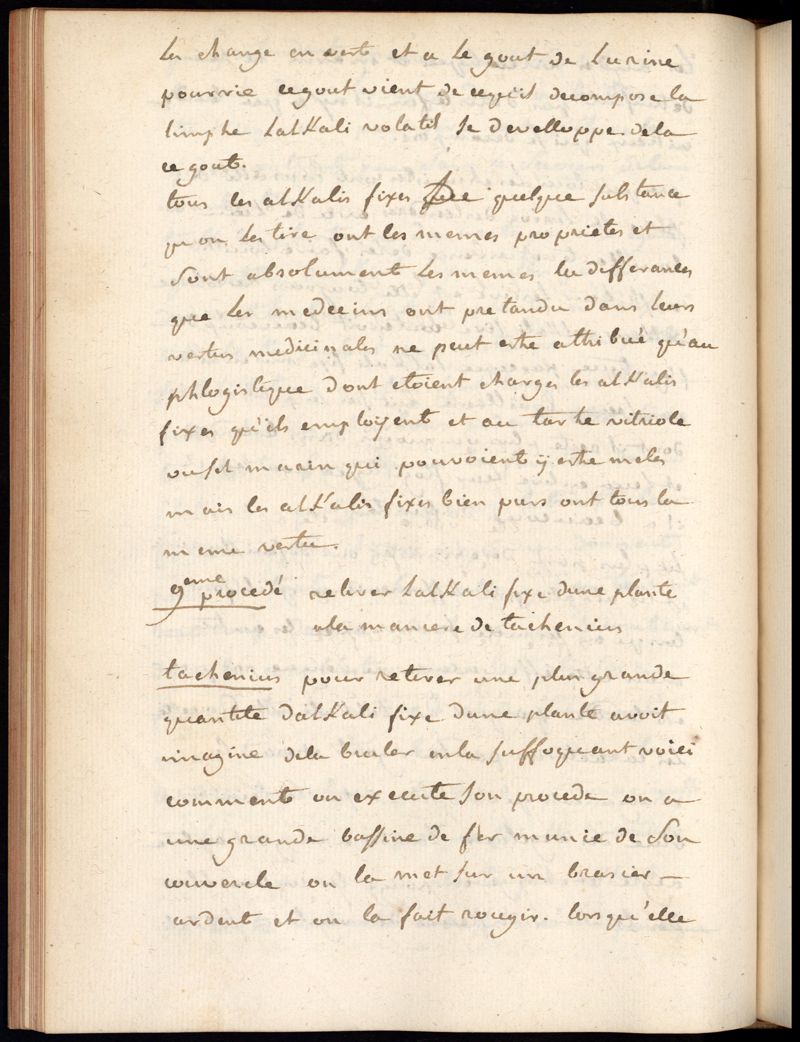 les change en vert et a le gout de Lurine
pourrie ce gout vient de cequ'il decompose la
limphe LalKali volatil se developpe. dela
ce gout.
tous les alKalis fixes que quelque substance
qu'on les tire ont les memes proprietes et
sont absolument les memes les differances
que les medecins ont pretandu dans leurs
vertus medicinales ne peut estre attribué qu'au
phlogistique dont etoient charges les alKalis
fixes qu'ils employent et au tartre vitriole
ou sel marin qui pouvoient ÿ estre meles
mais les alKalis fixes bien purs ont tous la
meme vertu.
9eme procedé retirer LalKali fixe dune plante
a la maniere de tachenius
tachenius pour retirer une plus grande
quantite dalKali fixe dune plante avoit
imagine dela bruler en la suffoquant voici
comment on execute son procede on a
une grande bassine de fer munie de son
couvercle on la met sur un brasier —
ardent et on la fait rougir. lorsqu'elle